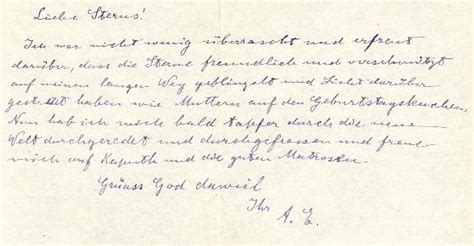 Liebe Sterns!
Ich war nicht wenig überrascht und erfreut
darüber, dass die Sterne freundlich und verschmitzt
auf meinen langen Weg geblinzelt und Licht darüber
gestreut haben wie Muttern auf den Geburtstagskuchen.
Nun hab ich mich bald tapfer durch die neue
Welt durchgeredet und durchgefressen und freue
mich auf Kaputh und die guten Matrosen.
Grüass God derweil
Ihr A. E.